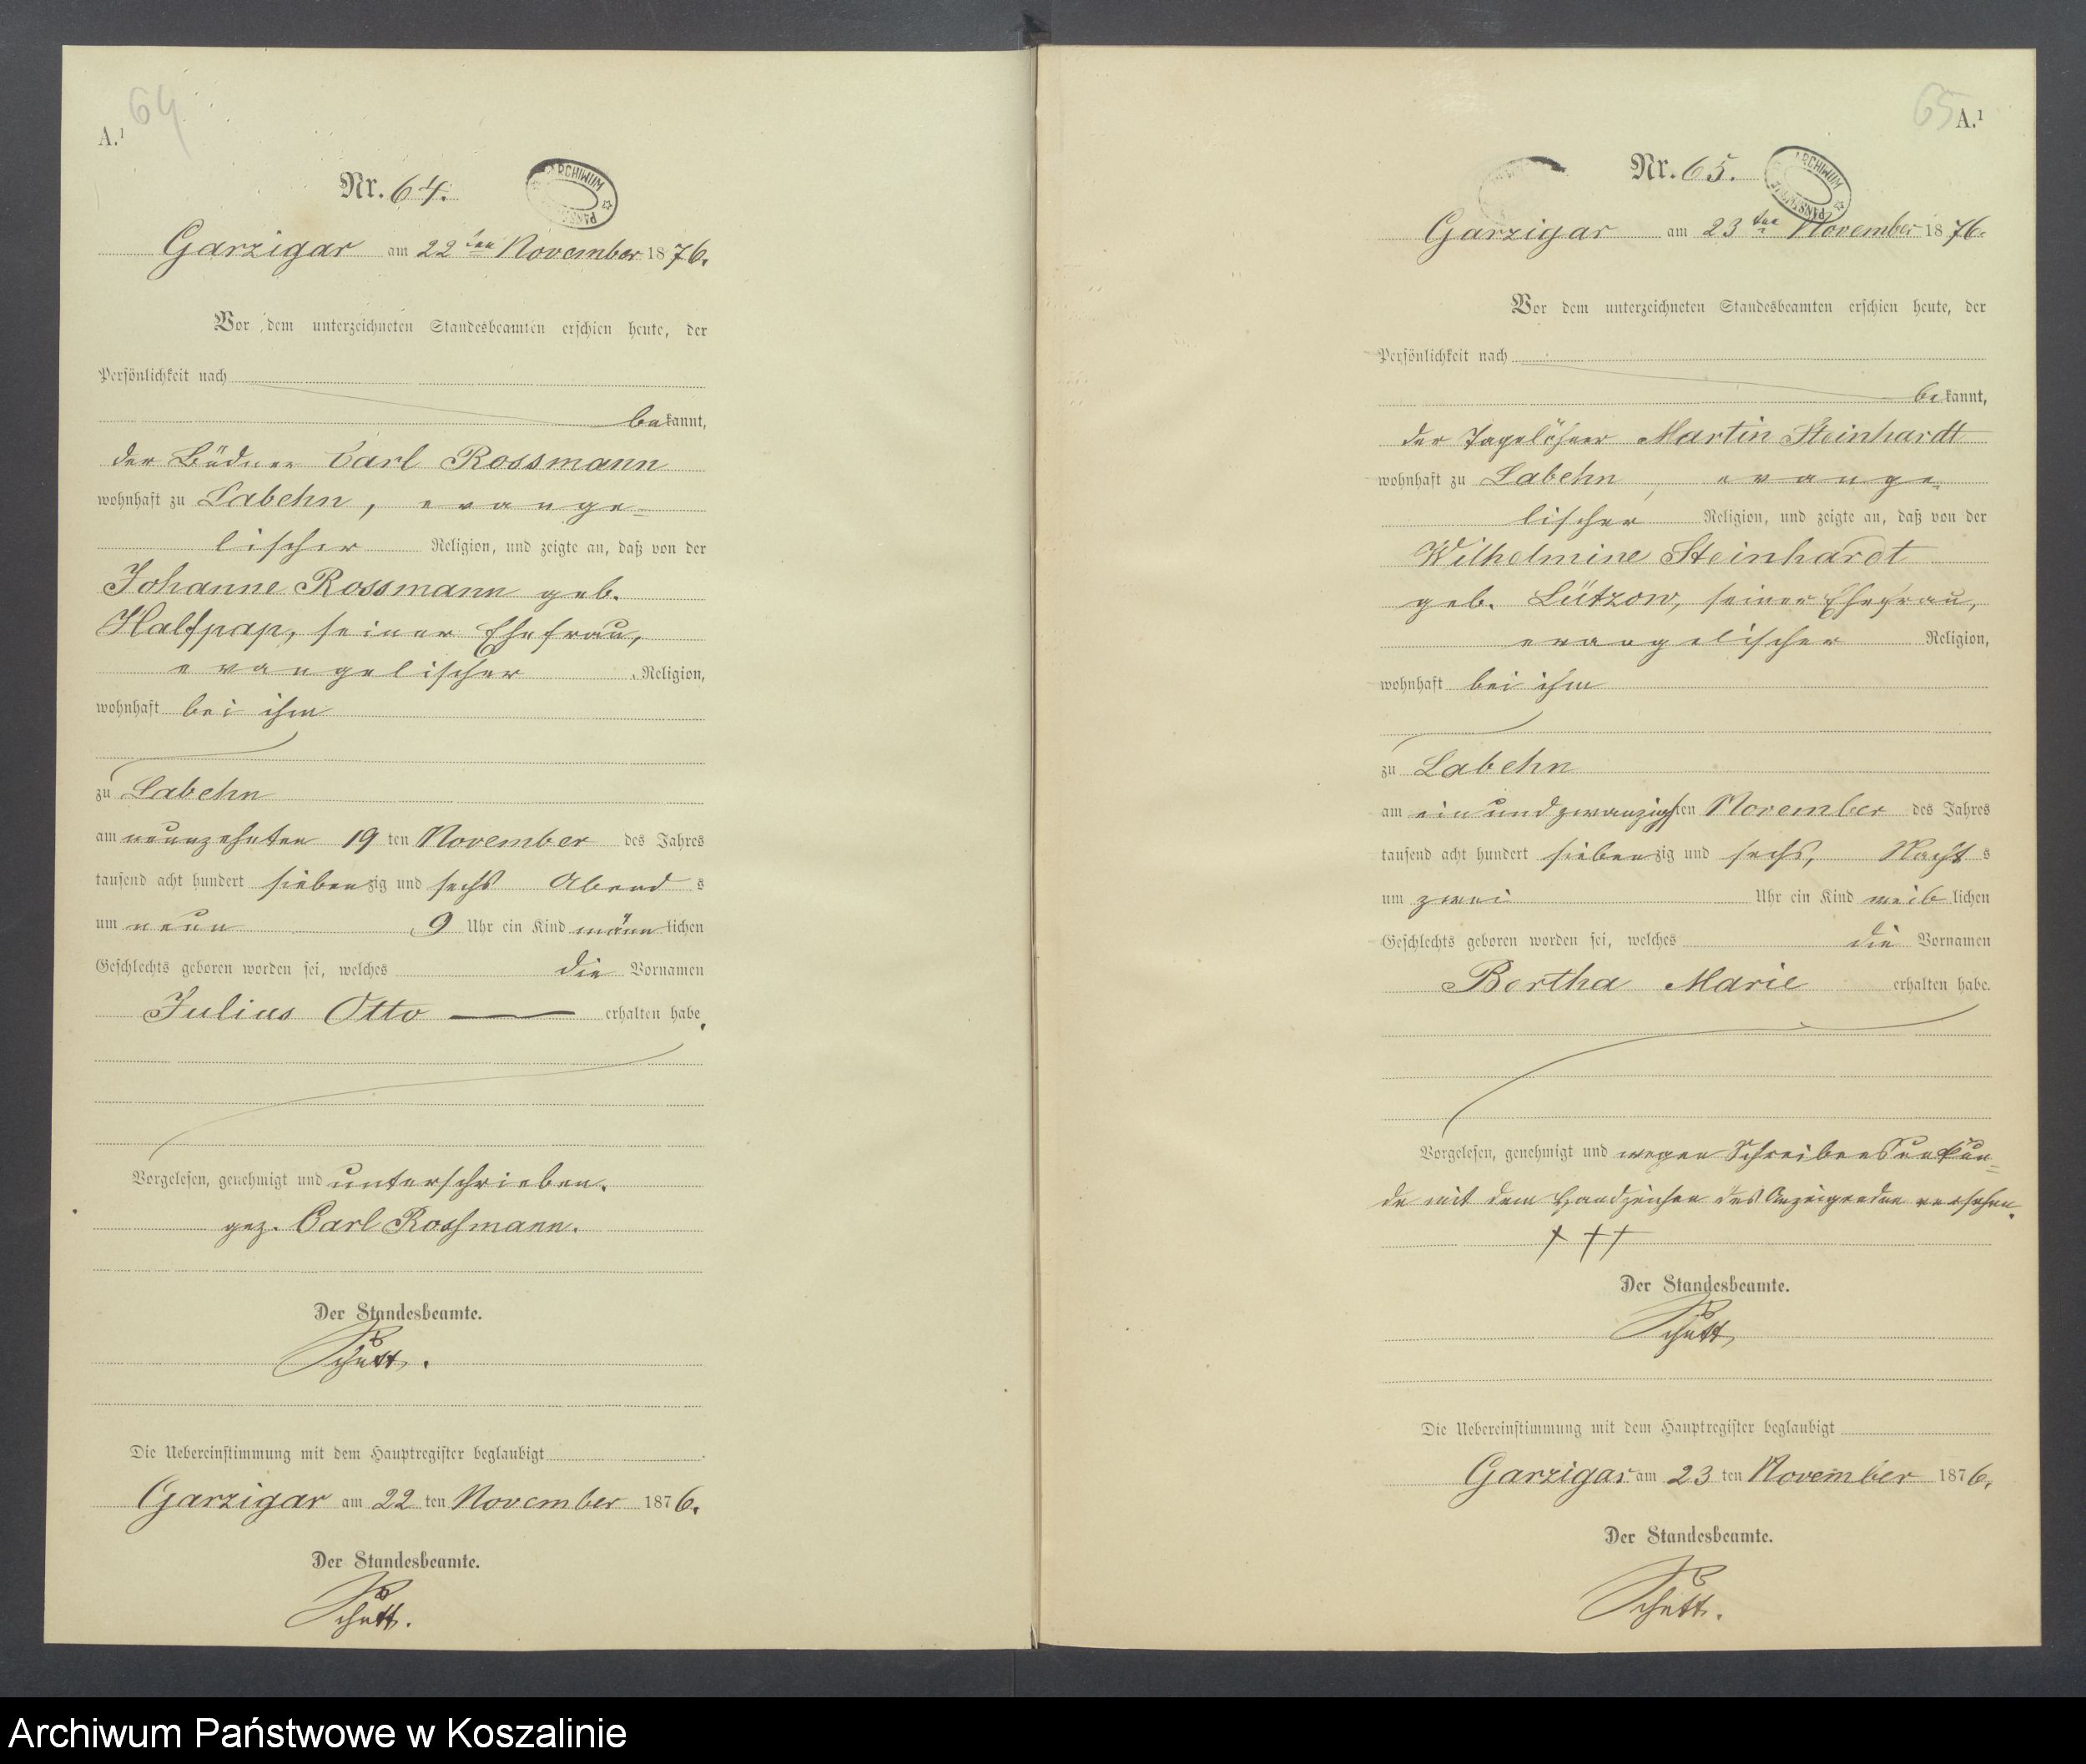 64
A.¹
Nr. 64.
ARCHIWUM
Garzigar am 22ten November 1876.
Vor dem unterzeichneten Standesbeamten erschien heute, der
Persönlichkeit nach
bekannt,
der Büdner Carl Rossmann
wohnhaft zu Labehn, evange-
lischer Religion, und zeigte an, daß von der
Johanne Rossmann geb.
Halfpap, seiner Ehefrau,
evangelischer Religion,
wohnhaft bei ihm
zu Labehn
am neunzehnten 19 ten November des Jahres
tausend acht hundert siebenzig und sechs Abends
um neun 9 Uhr ein Kind männlichen
Geschlechts geboren worden sei, welches die Vornamen
Julius Otto — erhalten habe.
Vorgelesen, genehmigt und unterschrieben.
gez. Carl Roßmann.
Der Standesbeamte.
Schütt.
Die Uebereinstimmung mit dem Hauptregister beglaubigt
Garzigar am 22 ten November 1876.
Der Standesbeamte.
Schütt.
65
A.¹
Nr. 65.
ARCHIWUM
Garzigar am 23ten November 1876.
Vor dem unterzeichneten Standesbeamten erschien heute, der
Persönlichkeit nach
bekannt,
der Tagelöhner Martin Steinhardt
wohnhaft zu Labehn, evange-
lischer Religion, und zeigte an, daß von der
Wilhelmine Steinhardt
geb. Lützow, seiner Ehefrau,
evangelischer Religion,
wohnhaft bei ihm
zu Labehn
am einundzwanzigsten November des Jahres
tausend acht hundert siebenzig und sechs, Nachts
um zwei Uhr ein Kind weiblichen
Geschlechts geboren worden sei, welches die Vornamen
Bertha Marie erhalten habe.
Vorgelesen, genehmigt und wegen Schreibensunkun-
de mit dem Handzeichen des Anzeigenden versehen.
+ + +
Der Standesbeamte.
Schütt
Die Uebereinstimmung mit dem Hauptregister beglaubigt
Garzigar am 23 ten November 1876.
Der Standesbeamte.
Schütt.
Archiwum Państwowe w Koszalinie